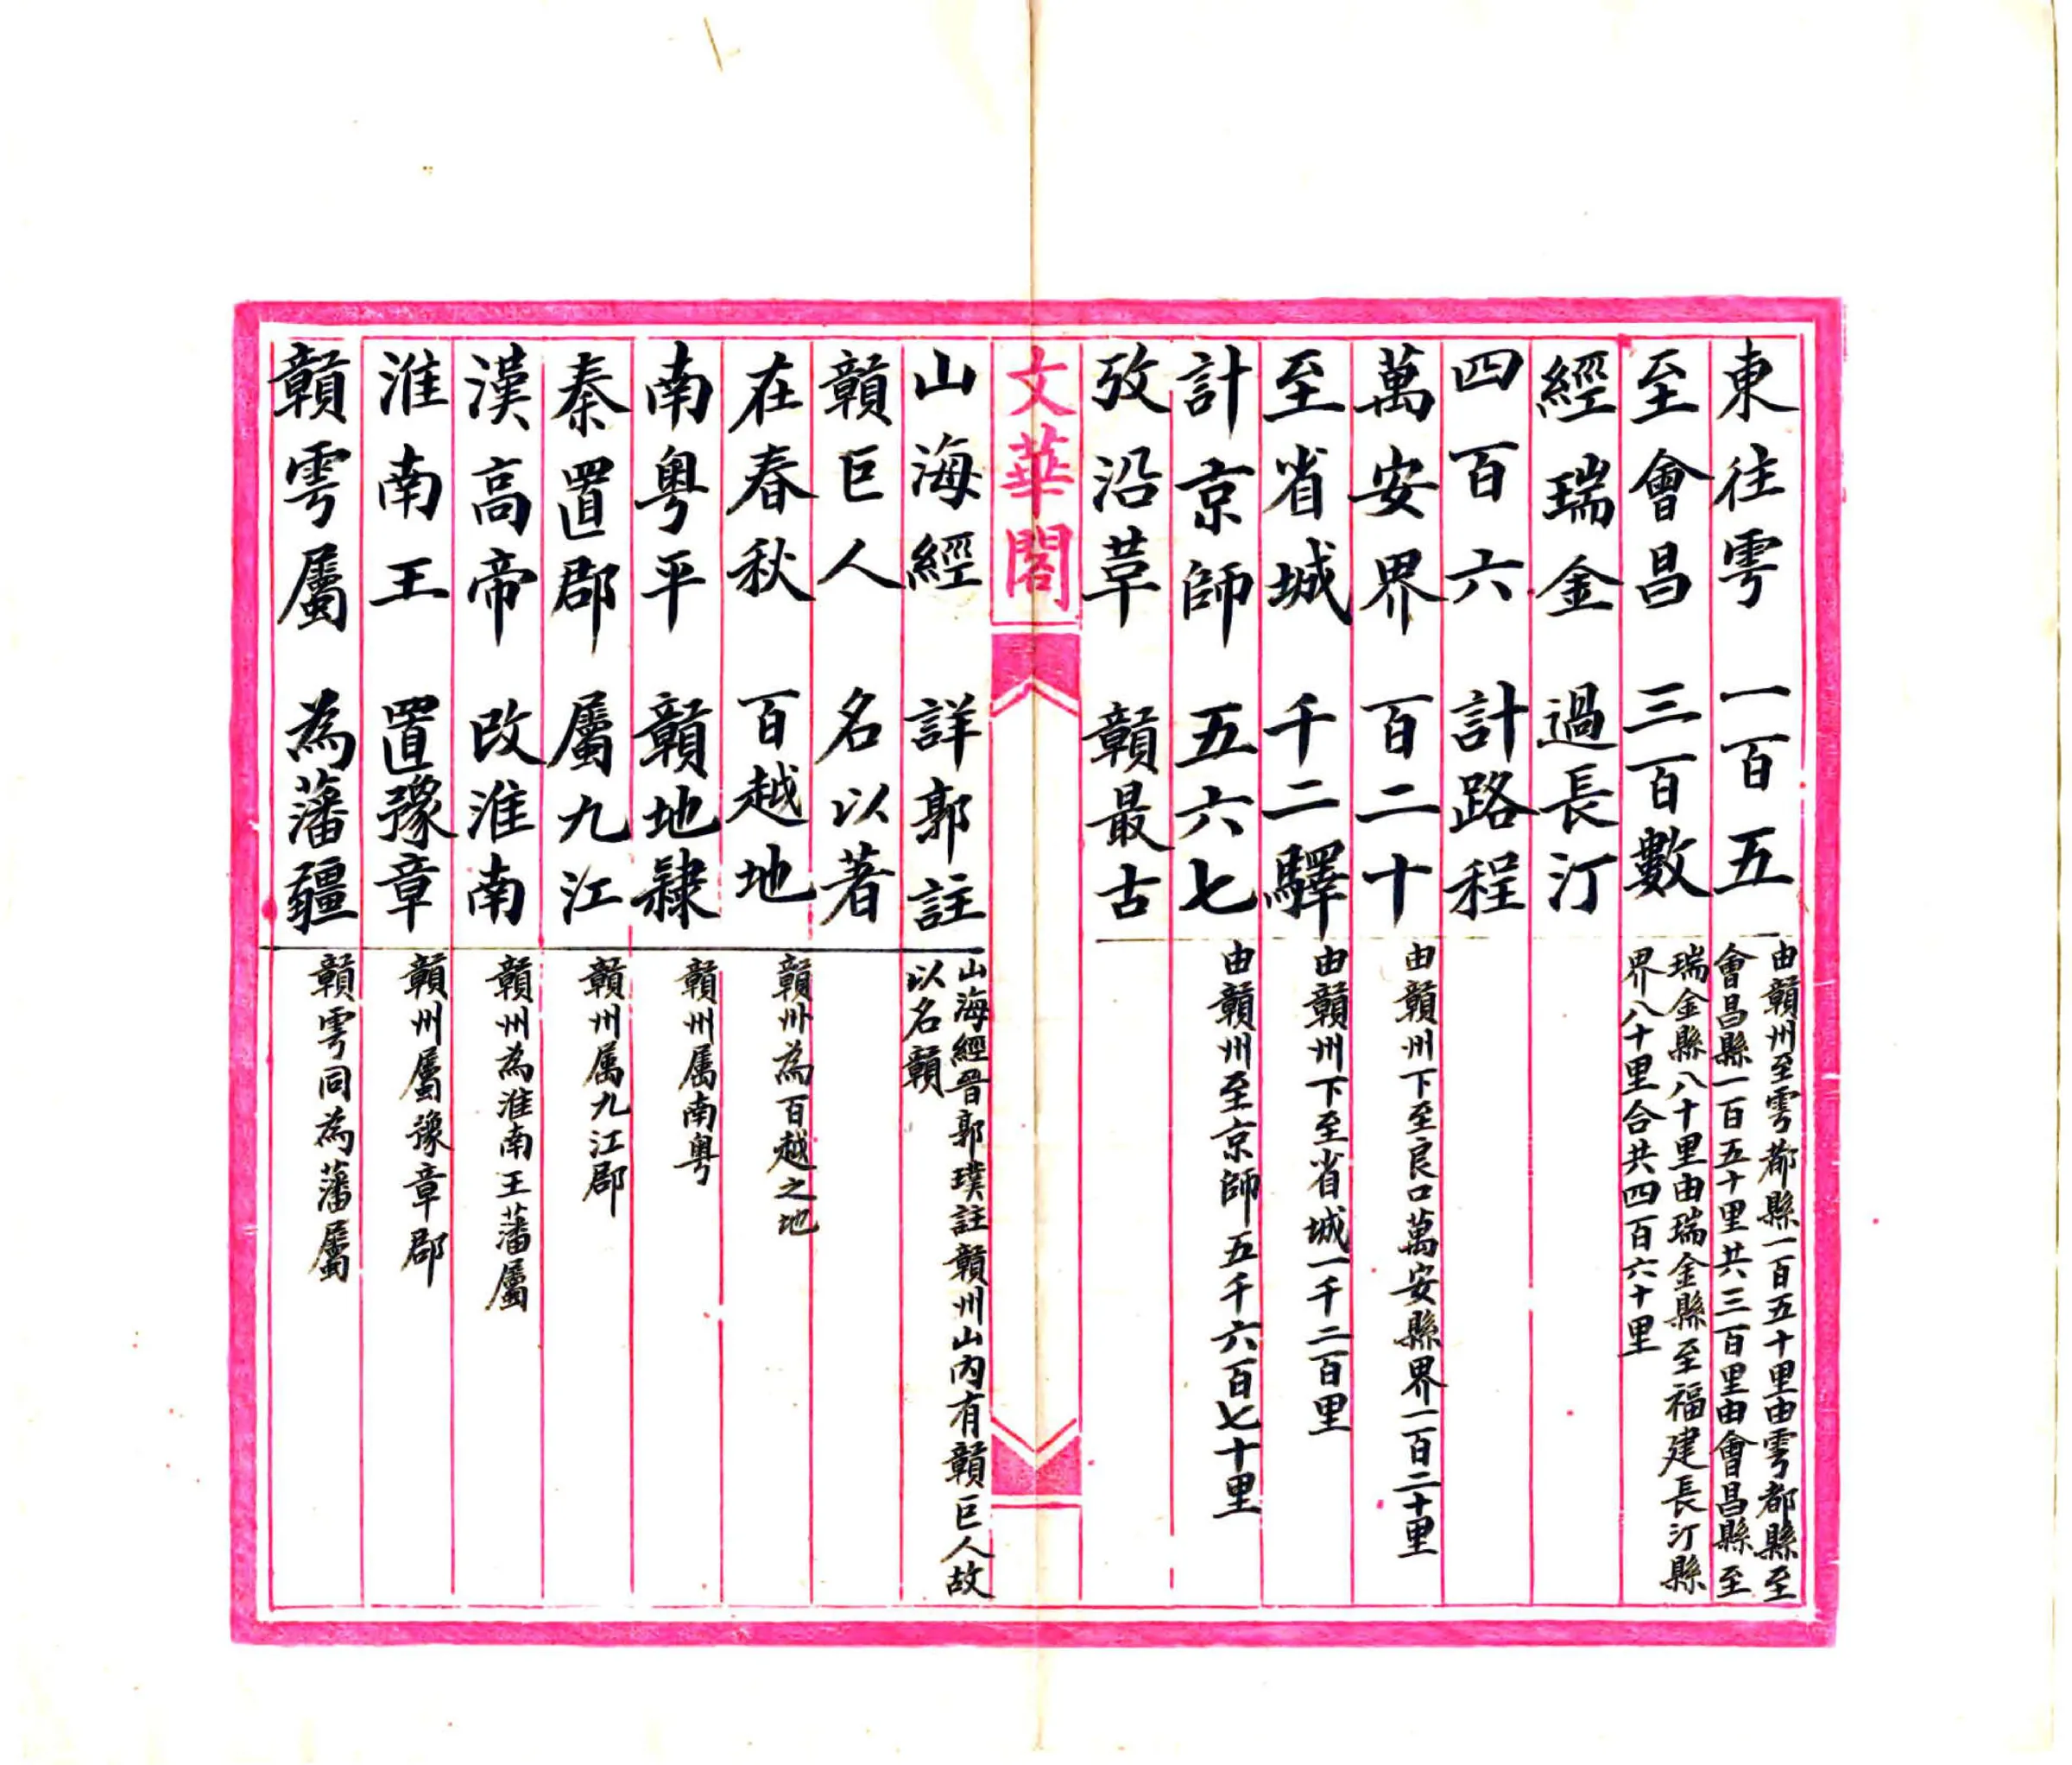 東往雩 一百五
由贛州至雩都縣一百五十里由雩都縣至
會昌縣一百五十里共三百里由會昌縣至
至會昌 三百數
瑞金縣八十里由瑞金縣至福建長汀縣
界八十里合共四百六十里
經瑞金 過長汀
四百六 計路程
萬安界 百二十
由贛州下至良口萬安縣界一百二十里
至省城 千二驛
由贛州下至省城一千二百里
計京師 五六七
由贛州至京師五千六百七十里
攷沿革 贛最古
文華閣
山海經 詳郭註
山海經晉郭璞註贛州山內有贛巨人故
以名贛
贛巨人 名以著
在春秋 百越地
贛州為百越之地
南粵平 贛地隸
贛州屬南粵
秦置郡 屬九江
贛州属九江郡
漢高帝 改淮南
贛州為淮南王藩屬
淮南王 置豫章
贛州屬豫章郡
贛雩屬 為藩疆
贛雩同為藩屬